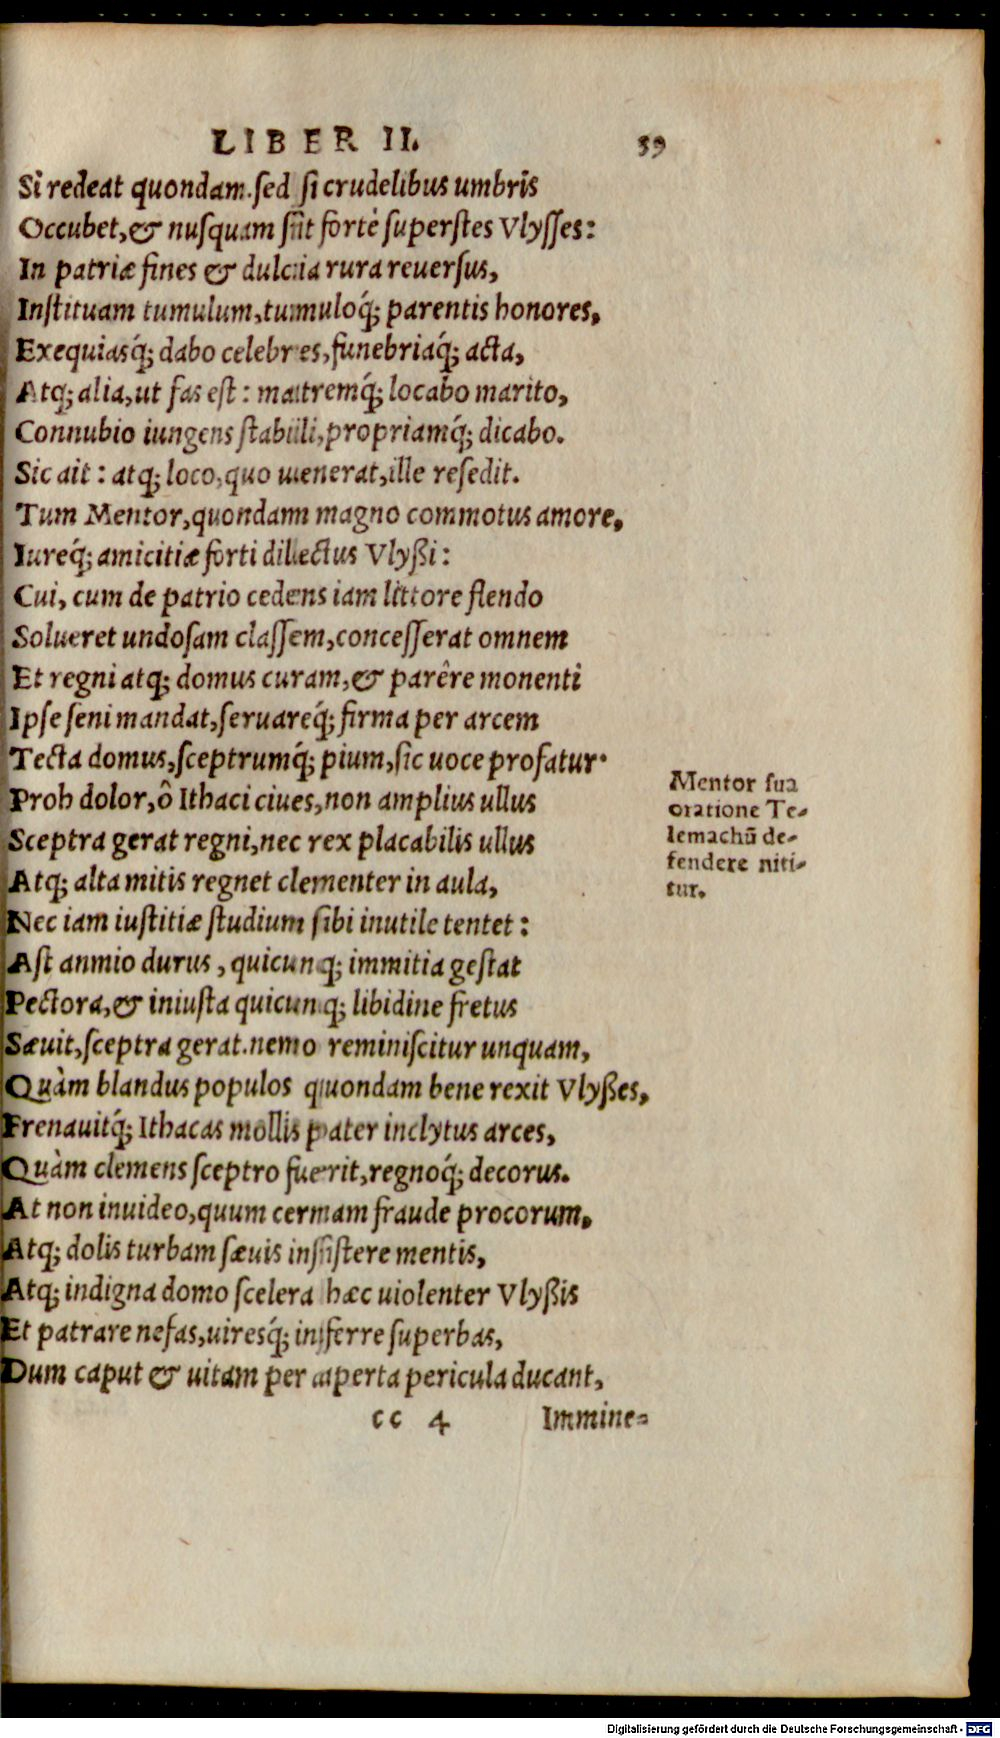 LIBER II. 39
Si redeat quondam. sed si crudelibus umbris
Occubet, & nusquam sit fortè superstes Vlysses:
In patriæ fines & dulcia rura reuersus,
Instituam tumulum, tumuloq́; parentis honores,
Exequiasq́; dabo celebres, funebriaq́; acta,
Atq; alia, ut fas est: matremq́; locabo marito,
Connubio iungens stabili, propriamq́; dicabo.
Sic ait: atq; loco, quo uenerat, ille resedit.
Tum Mentor, quondam magno commotus amore,
Iureq́; amicitiæ forti dilectus Vlyßi:
Cui, cum de patrio cedens iam littore flendo
Solueret undosam classem, concesserat omnem
Et regni atq; domus curam, & parêre monenti
Ipse seni mandat, seruareq́; firma per arcem
Tecta domus, sceptrumq́; pium, sic uoce profatur.
Proh dolor, ô Ithaci ciues, non amplius ullus
Sceptra gerat regni, nec rex placabilis ullus
Atq; alta mitis regnet clementer in aula,
Nec iam iustitiæ studium sibi inutile tentet:
Ast anmio durus, quicunq; immitia gestat
Pectora, & iniusta quicunq; libidine fretus
Sæuit, sceptra gerat. nemo reminiscitur unquam,
Quàm blandus populos quondam bene rexit Vlyßes,
Frenauitq́; Ithacas mollis pater inclytus arces,
Quàm clemens sceptro fuerit, regnoq́; decorus.
At non inuideo, quum cernam fraude procorum,
Atq; dolis turbam sæuis insistere mentis,
Atq; indigna domo scelera hæc uiolenter Vlyßis
Et patrare nefas, uiresq́; inferre superbas,
Dum caput & uitam per aperta pericula ducant,
cc 4 Immine-
Mentor sua
oratione Te-
lemachū de-
fendere niti-
tur.
Digitalisierung gefördert durch die Deutsche Forschungsgemeinschaft - DFG